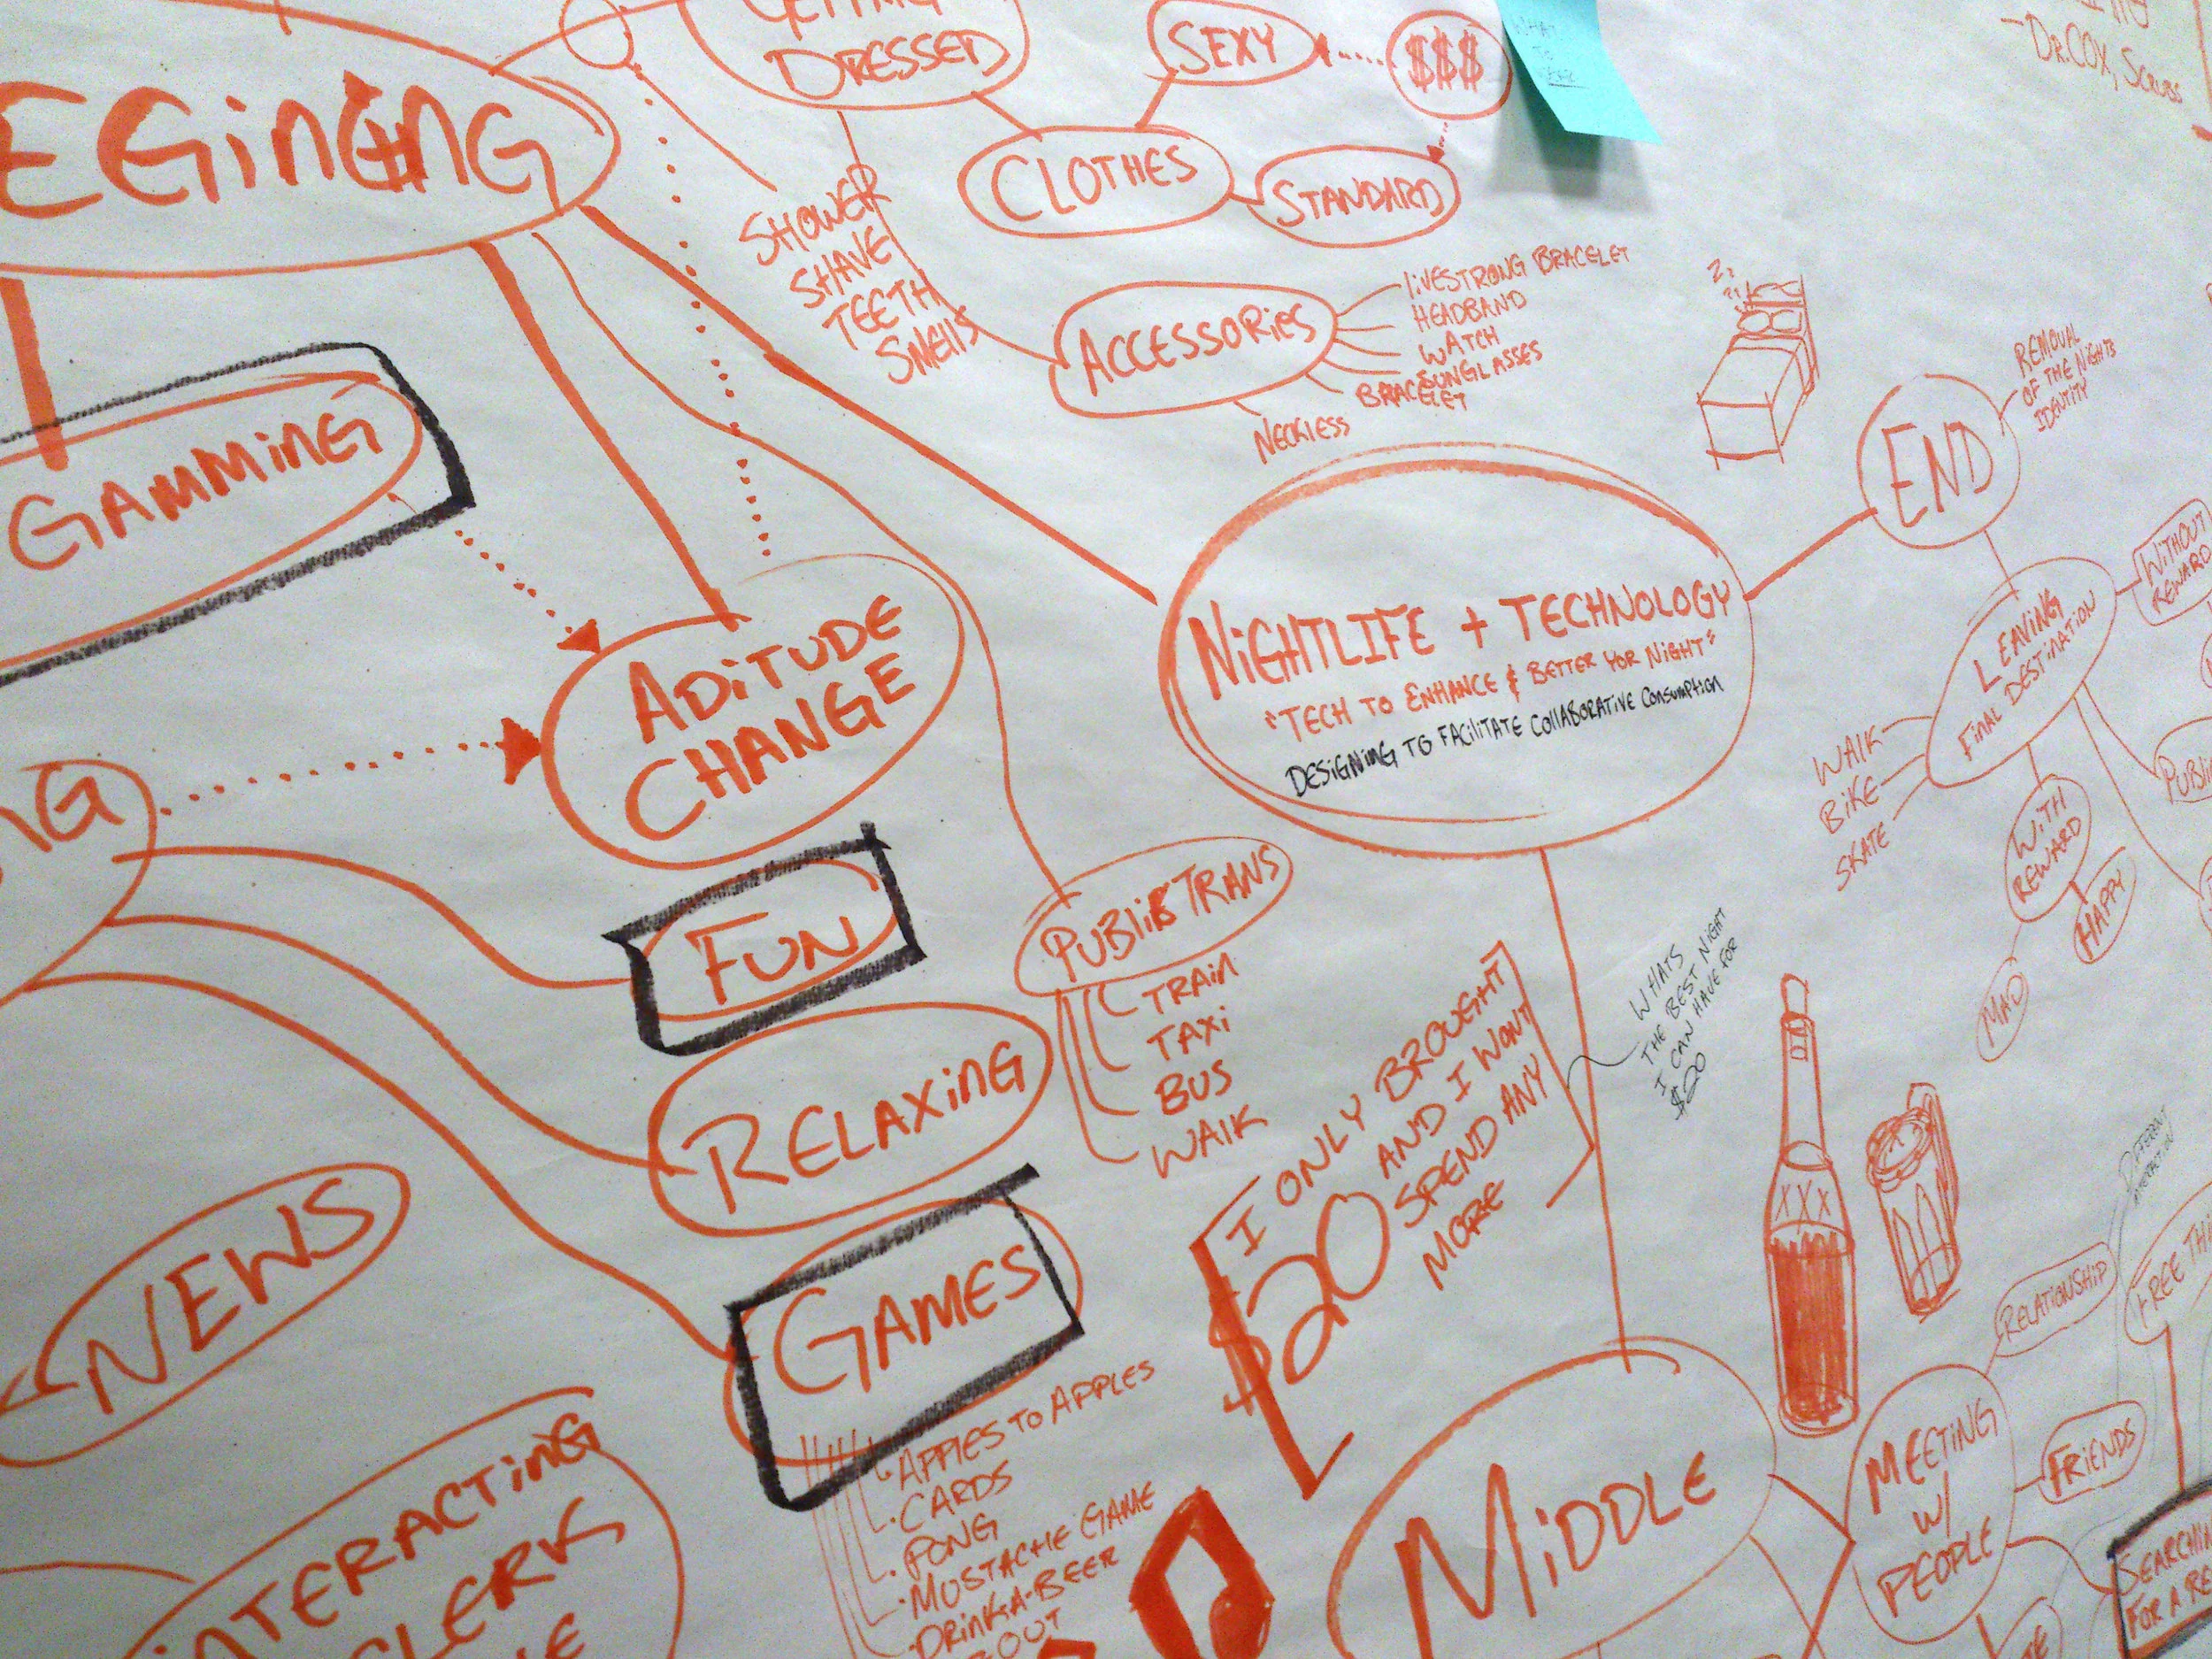 DRESSED
SEXY
$$$
WHAT
TO
-DR. COX, SCRUBS
EGINING
CLOTHES
STANDARD
SHOWER
SHAVE
TEETH
SMELLS
ACCESSORIES
LIVESTRONG BRACELET
HEADBAND
WATCH
SUNGLASSES
BRACELET
NECKLESS
GAMMING
END
REMOVAL
OF THE NIGHTS
IDENTITY
ADITUDE
CHANGE
NIGHTLIFE + TECHNOLOGY
"TECH TO ENHANCE & BETTER YOR NIGHT"
DESIGNING TO FACILITATE COLLABORATIVE CONSUMPTION
LEAVING
FINAL DESTINATION
WITHOUT
REWARD
WALK
BIKE
SKATE
WITH
REWARD
HAPPY
MAD
PUBLI
NG
FUN
PUBLIC TRANS
TRAIN
TAXI
BUS
WALK
RELAXING
I ONLY BROUGHT
$20
AND I WONT
SPEND ANY
MORE
WHATS
THE BEST NIGHT
I CAN HAVE FOR
$20
XXX
NEWS
GAMES
·APPLES TO APPLES
·CARDS
·PONG
·MUSTACHE GAME
·DRINK-A-BEER
BOUT
INTERACTING
CLERK
MIDDLE
MEETING
W/
PEOPLE
RELATIONSHIP
FRIENDS
DIFFERENT
INTERACTION
FREE THI
SEARCHIN
FOR A RE